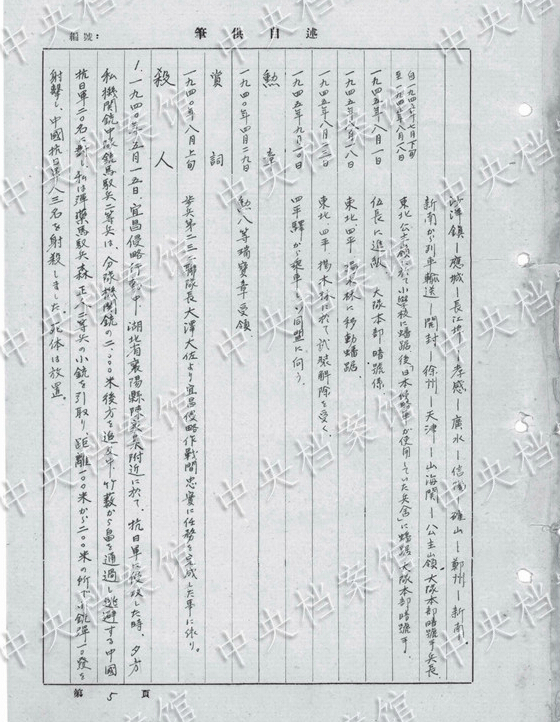 述自供筆
編號:
沙洋鎮ー應城ー長江埠ー孝感ー廣水ー信陽ー確山ー鄭州ー新南。
新南から列車輸送ー開封ー徐州ー天津ー山海関ー公主嶺。大隊本部暗號手兵長
自一九四五年七月下旬
至一九四五年八月八日
東北公主嶺に於て小學校に蟠踞後「日本侵略軍が使用していた兵舎」に蟠踞。大隊本部暗號手。
一九四五年八月一日 伍長に進級。大隊本部暗號係
一九四五年八月一八日 東北四平 楊木林に移動蟠踞。
東北四平 楊木林に於て武装解除を受く。
四平驛から乘車しソ同盟に向う。
勲章
一九四〇年四月二九日 勲八等瑞寶章受領
賞詞
一九四〇年八月上旬 歩兵第二三三聯隊長大澤大佐より宜昌侵略作戰間忠實に任務を完成した事に依り。
殺人
1. 一九四〇年五月一五日、宜昌侵略行動中 湖北省襄陽縣 附近に於て、抗日軍に侵攻した時、夕方
私機関銃中隊銃馬馭兵二等兵は、分隊機関銃の二、〇〇〇米後方を追及中、竹藪から畠を通過し逃避する中國
抗日軍二〇名に對し私は彈藥馬馭兵森正八二等兵の小銃を引取り、距離一〇〇米から二〇〇米の所で小銃彈一〇發を
射撃し、中國抗日軍八三名を射殺しました。死体は放置。
第 5 頁
中央档案馆